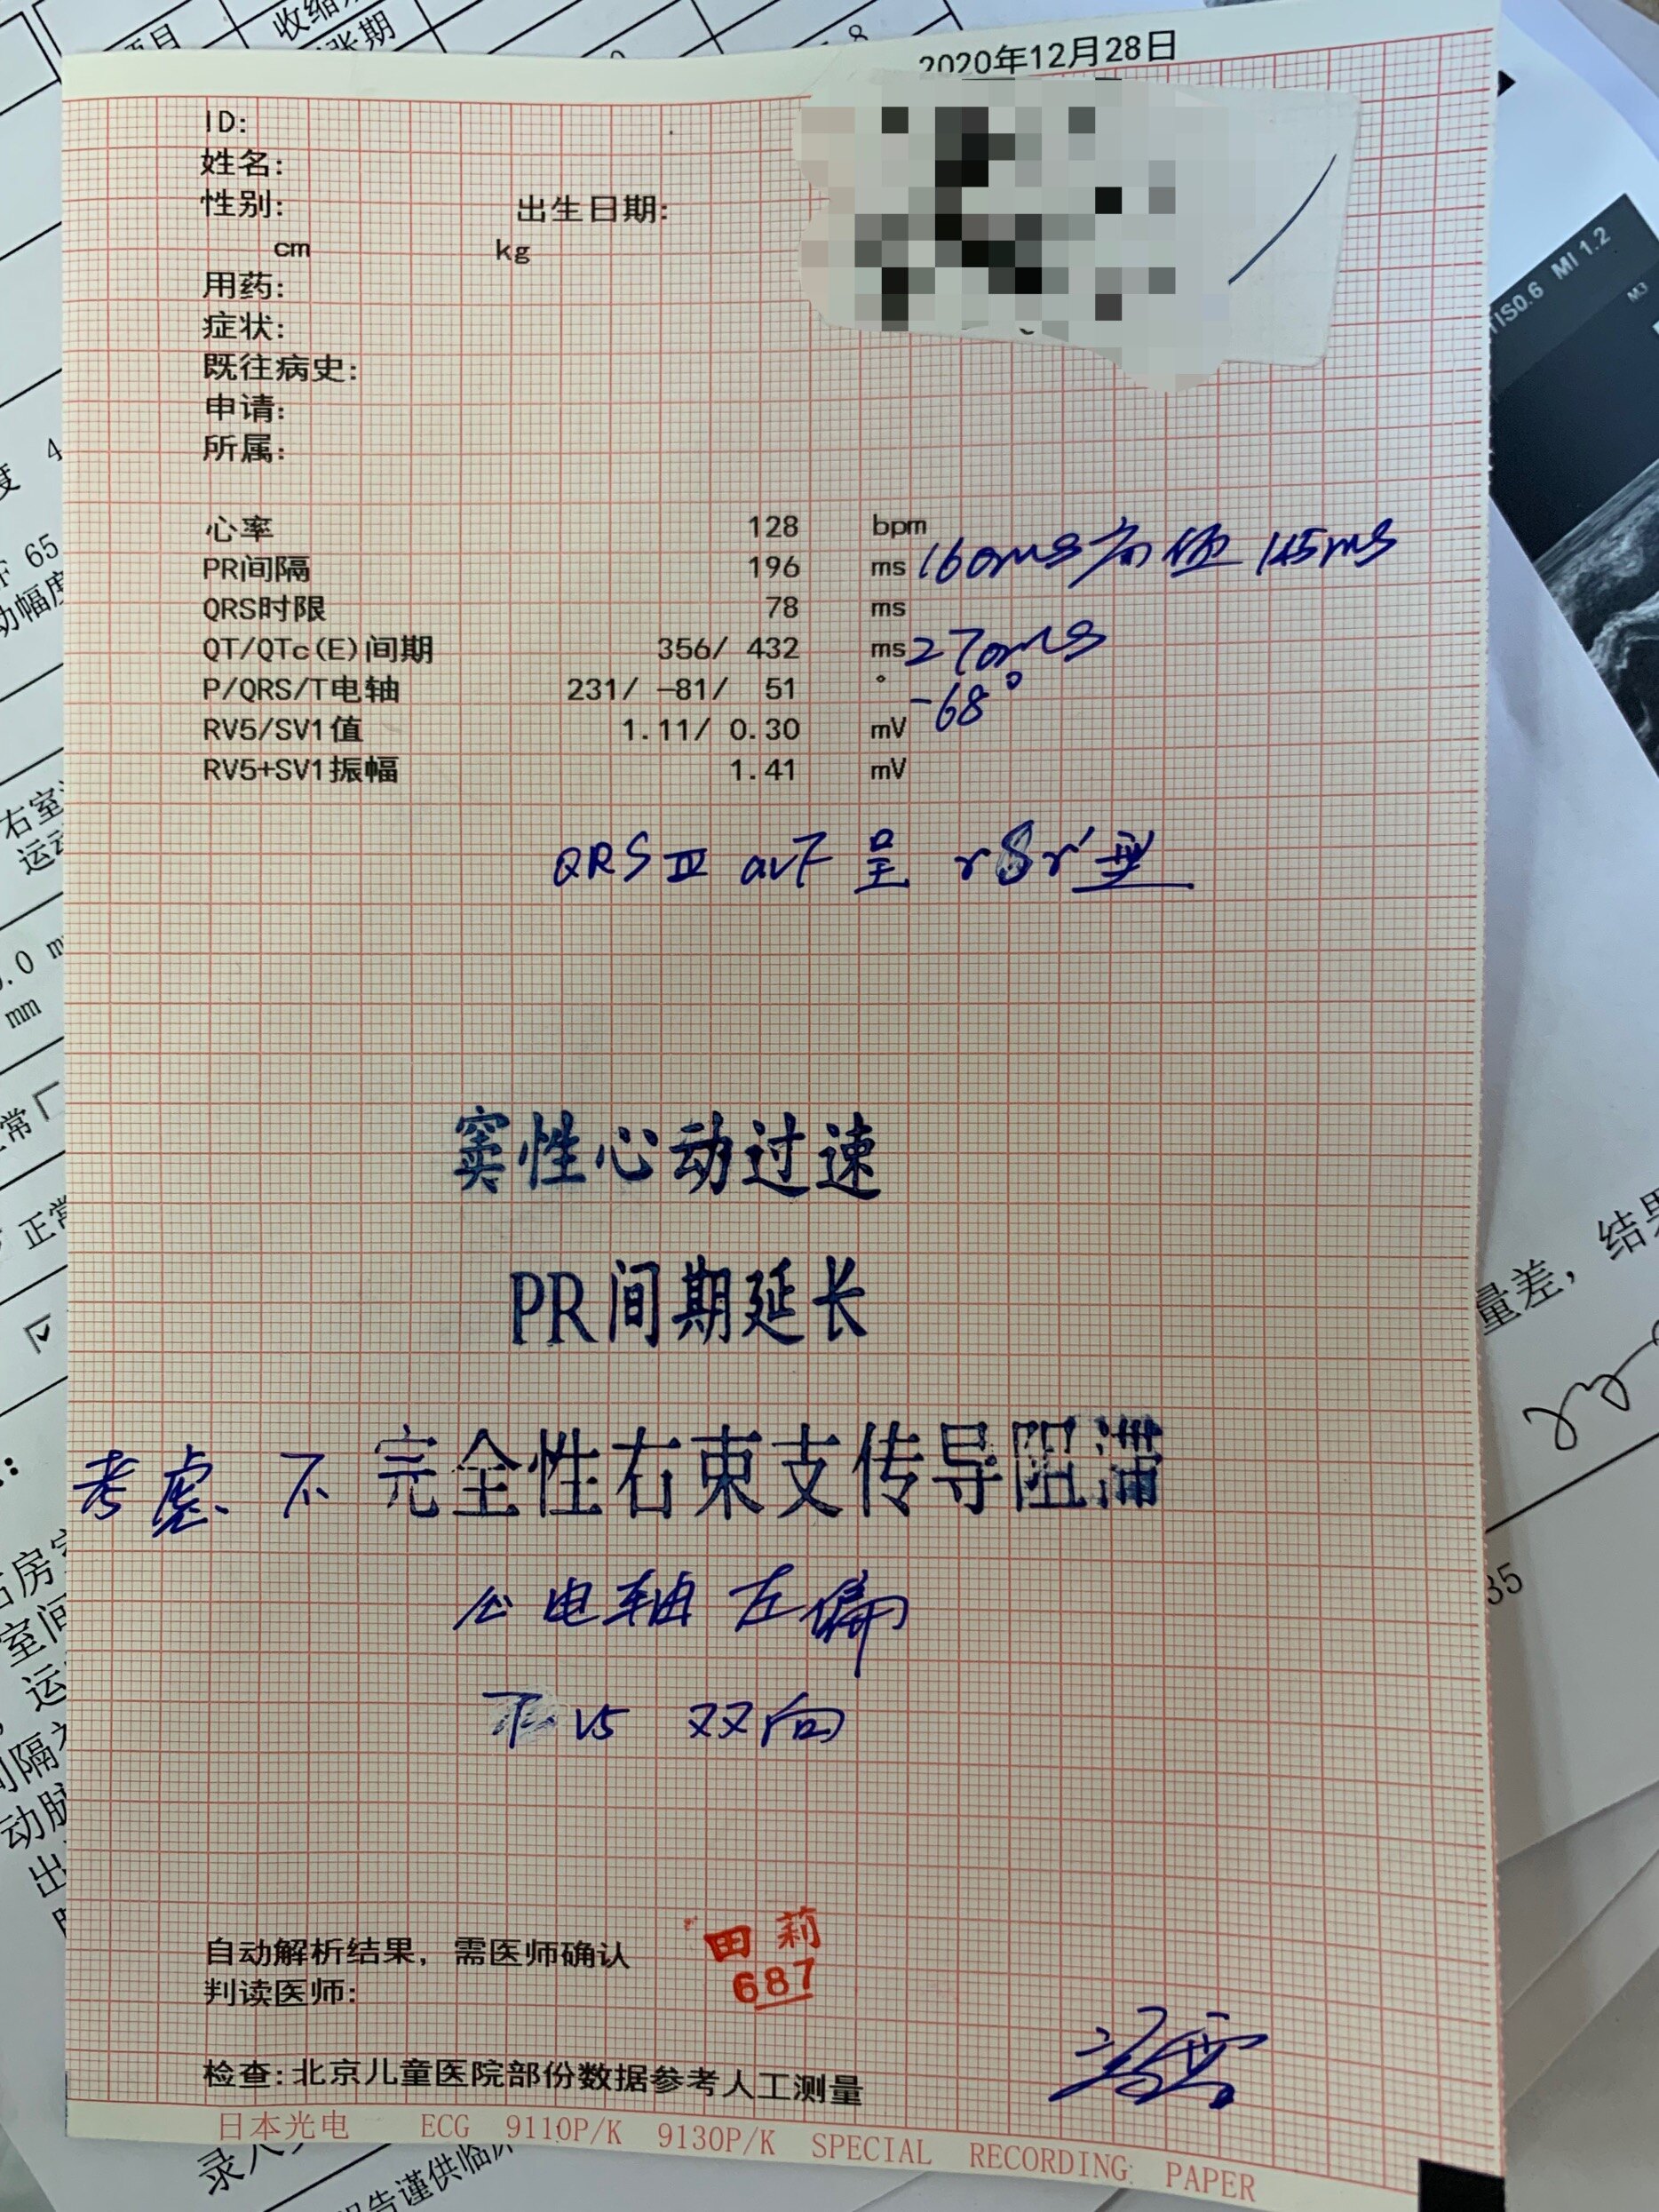 2020年12月28日
ID:
姓名:
性别: 出生日期:
cm kg
用药:
症状:
既往病史:
申请:
所属:
心率 128 bpm
PR间隔 196 ms 160ms 高值 145ms
QRS时限 78 ms
QT/QTc(E)间期 356/ 432 ms 270ms
P/QRS/T电轴 231/ -81/ 51 ° -68°
RV5/SV1值 1.11/ 0.30 mV
RV5+SV1振幅 1.41 mV
QRS III avF 呈 rSr'型
窦性心动过速
PR间期延长
考虑 不完全性右束支传导阻滞
心电轴左偏
T V5 双向
自动解析结果，需医师确认
田莉
687
判读医师:
检查:北京儿童医院部份数据参考人工测量
日本光电 ECG 9110P/K 9130P/K SPECIAL RECORDING PAPER
TIS0.6 MI 1.2
M3
项目
度 4
F 65
动幅度
右室
运动
mm
正常
量差，结果
35